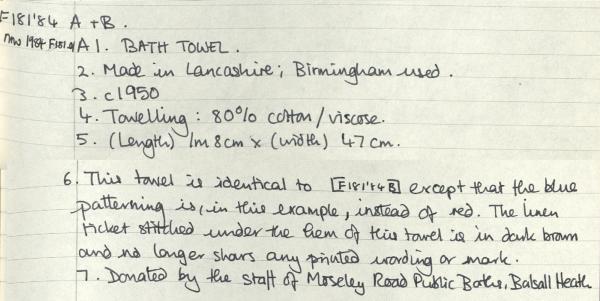 F181'84 A + B.
now 1984 F181.41 A 1. BATH TOWEL.
2. Made in Lancashire; Birmingham used.
3. c1950
4. Towelling: 80% cotton/viscose.
5. (Length) 1m 8cm x (width) 47cm.
6. This towel is identical to [F181'84 B] except that the blue
patterning is, in this example, instead of red. The linen
ticket stitched under the hem of this towel is in dark brown
and no longer shows any printed wording or mark.
7. Donated by the staff of Moseley Road Public Baths, Balsall Heath